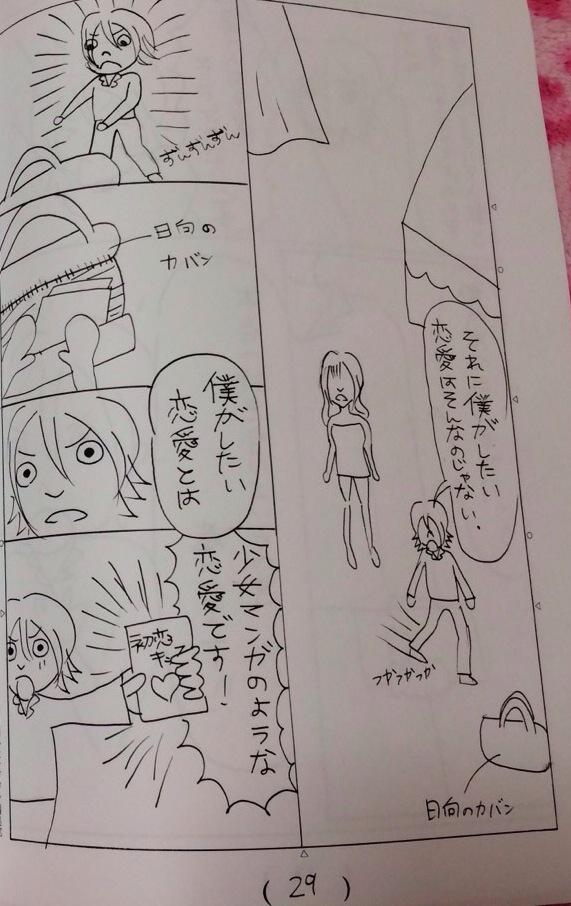 それに僕がしたい
恋愛はそんなのじゃない。
つかつかつか
日向のカバン
ずんずんずん
日向の
カバン
僕がしたい
恋愛とは
少女マンガのような
恋愛です！
初恋
(29)